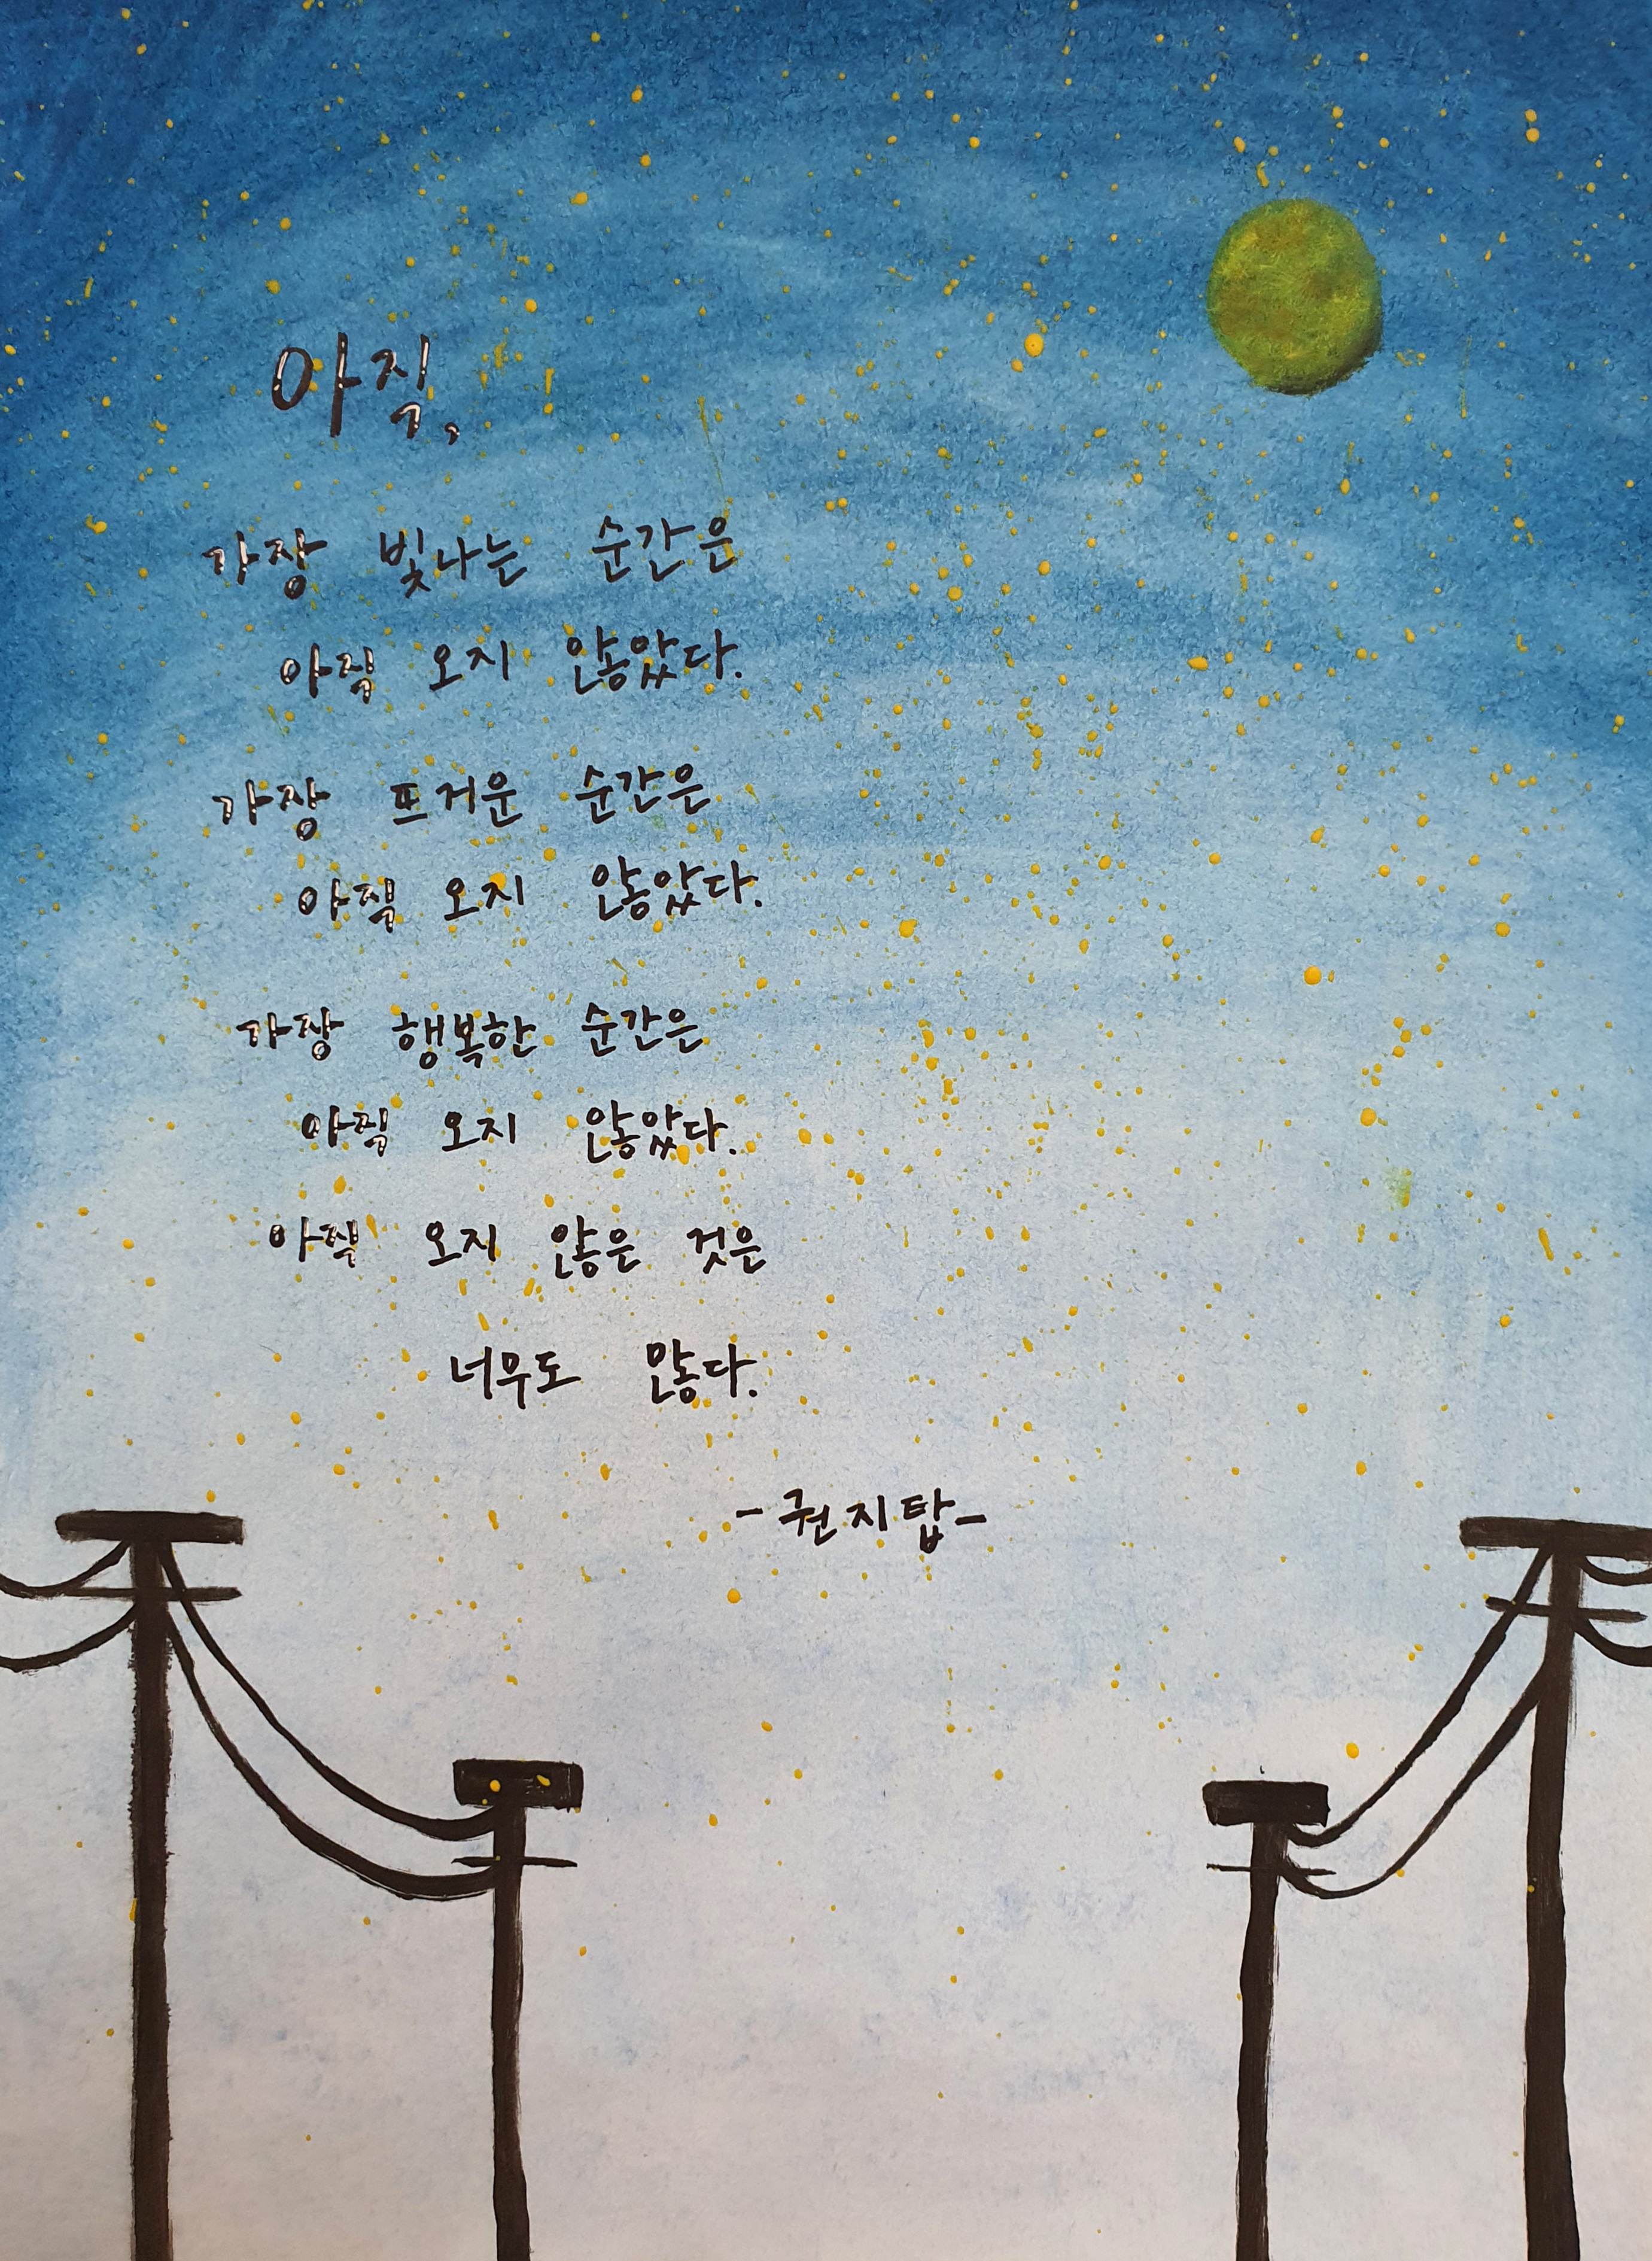 아직,
가장 빛나는 순간은
아직 오지 않았다.
가장 뜨거운 순간은
아직 오지 않았다.
가장 행복한 순간은
아직 오지 않았다.
아직 오지 않은 것은
너무도 많다.
-권지탑-